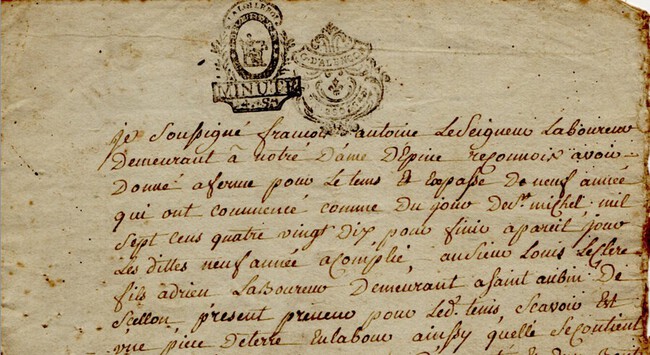 LA LOI LE ROI
MINUTE
4. S. 9 D.
G. D'ALENÇON
je Soussigné francois antoine Le Seigneur Laboureur
Demeurant à notré Dâme D'Epine reconnois avoir
Donné a ferme pour Le tems Et Espasse De neuf année
qui ont commencé comme Du jour De St. michel mil
Sept Cens quatre vingt Dix pour finir apareil jour
Les dittes neuf année acomplie, au Sieur Louis LeClerc
fils adrien Laboureur Demeurant a Saint aubin De
Scellon présent preneur pour Led. tems, Scavoir Est
une piece De terre En labour ainssy quelle Se Contient